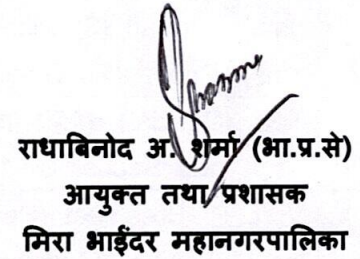 राधाबिनोद अ. शर्मा (भा.प्र.से)
आयुक्त तथा प्रशासक
मिरा भाईंदर महानगरपालिका